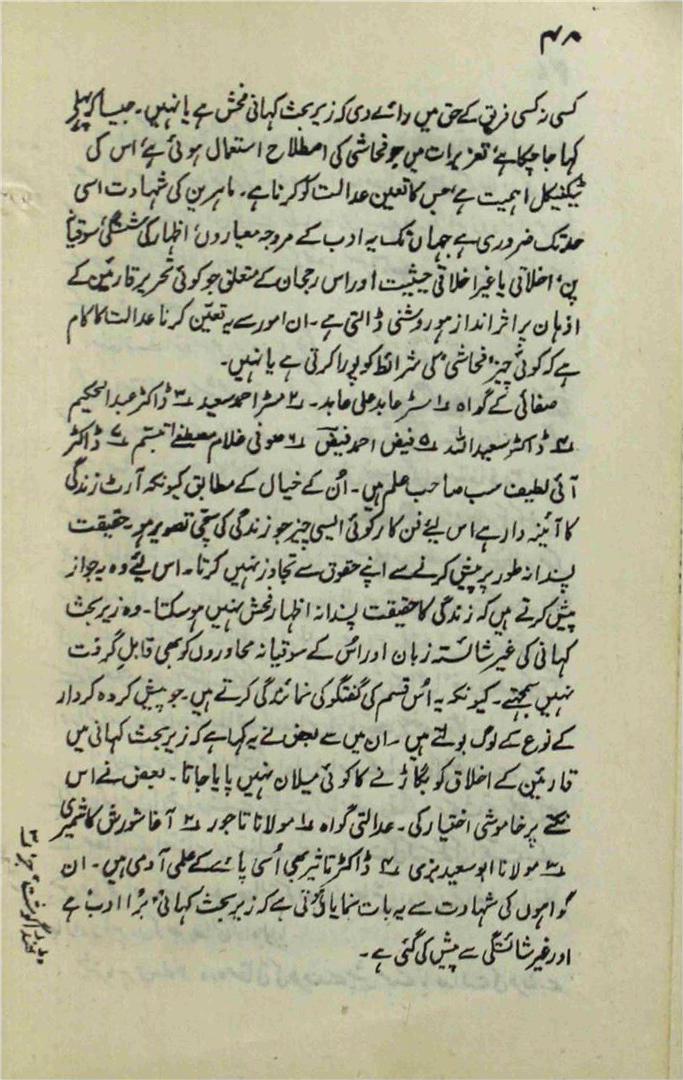 ۴۸
کسی نہ کسی فریق کے حق میں رائے دی کہ زیر بحث کہانی فحش ہے یا نہیں۔ جیسا کہ پہلے
کہا جا چکا ہے، تعزیرات میں جو فحاشی کی اصطلاح استعمال ہوئی ہے، اس کی
ٹیکنیکل اہمیت ہے، جس کا تعین عدالت کو کرنا ہے۔ ماہرین کی شہادت اسی
حد تک ضروری ہے جہاں تک یہ ادب کے مروجہ معیاروں، اظہار کی شستگی، سوقیانہ
پن، اخلاقی یا غیر اخلاقی حیثیت اور اس رجحان کے متعلق جو کوئی تحریر قارئین کے
اذہان پر اثر انداز ہو روشنی ڈالتی ہے۔ ان امور سے یہ تعیّن کرنا عدالت کا کام
ہے کہ کوئی چیز، فحاشی، کی شرائط کو پورا کرتی ہے یا نہیں۔
صفائی کے گواہ ۱؎ مسٹر عابد علی عابد۔ ۲؎ مسٹر احمد سعید ۳؎ ڈاکٹر عبدالحکیم
۴؎ ڈاکٹر سعید اللہ ۵؎ فیض احمد فیضؔ ۶؎ صوفی غلام مصطفےٰ تبسم ۷؎ ڈاکٹر
آئی لطیف سب صاحب علم ہیں۔ اُن کے خیال کے مطابق کیونکہ آرٹ زندگی
کا آئینہ دار ہے اس لئے فن کار کوئی ایسی چیز جو زندگی کی سچی تصویر ہو۔ حقیقت
پسندانہ طور پر پیش کرنے سے اپنے حقوق سے تجاوز نہیں کرتا۔ اس لئے وہ یہ جواز
پیش کرتے ہیں کہ زندگی کا حقیقت پسندانہ اظہار فحش نہیں ہو سکتا۔ وہ زیر بحث
کہانی کی غیر شائستہ زبان اور اُس کے سوقیانہ محاوروں کو بھی قابلِ گرفت
نہیں سمجھتے۔ کیونکہ یہ اُس قسم کی گفتگو کی نمائندگی کرتے ہیں۔ جو پیش کردہ کردار
کے نوع کے لوگ بولتے ہیں۔ ان میں سے بعض نے یہ کہا ہے کہ زیر بحث کہانی میں
قارئین کے اخلاق کو بگاڑنے کا کوئی میلان نہیں پایا جاتا۔ بعض نے اس
نکتے پر خاموشی اختیار کی۔ عدالتی گواہ ۱؎ مولانا تاجور ۲؎ آغا شورش کاشمیری
۳؎ مولانا ابو سعید بزمی ۴؎ ڈاکٹر تاثیر بھی اُسی پائے کے علمی آدمی ہیں۔ ان
گواہوں کی شہادت سے یہ بات نمایاں گئی ہے کہ زیر بحث کہانی، برُا ادب، ہے
اور غیر شائستگی سے پیش کی گئی ہے۔
ٹھنڈا گوشت